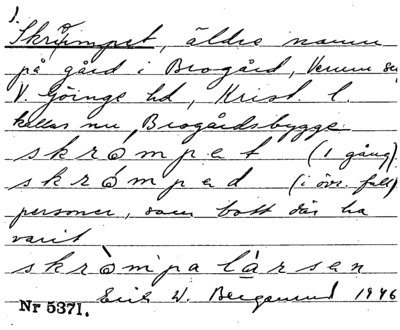 1.
Skrömpet, äldre namn
på gård i Brogård, Verum sn
V. Göinge hd, Krist. l.
kallas nu Brogårdsbygge
skrömpet (1 gång)
skrömped (i övr. fall)
personer, som bott där ha
varit
skrömpa lärsen
Nr 5371. Erik W. Bergstrand 1946